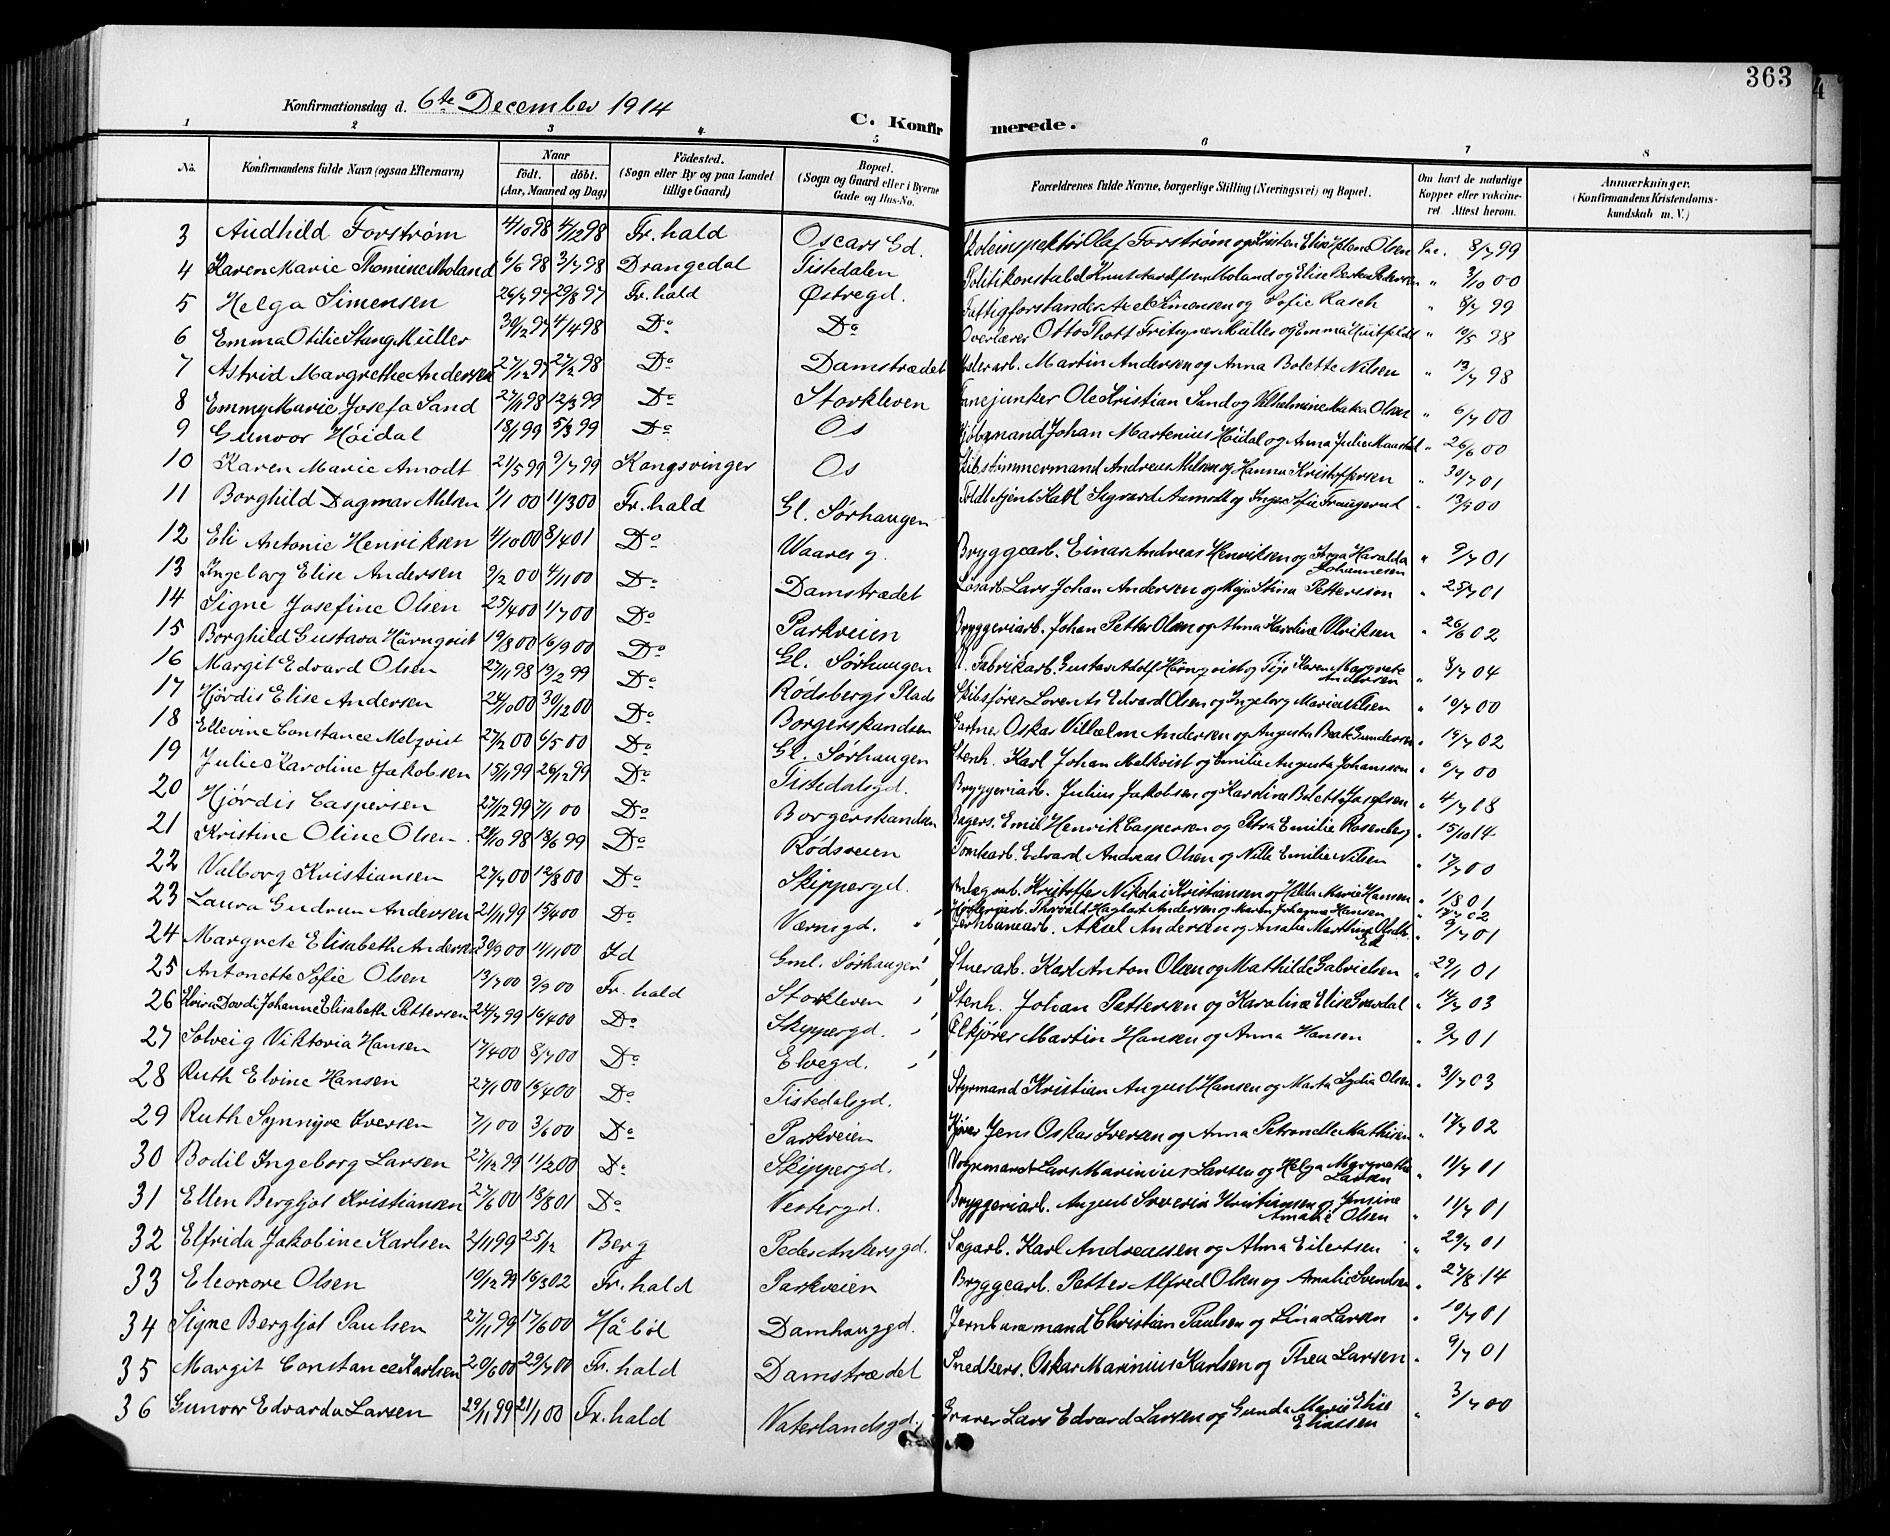 363
Konfirmationsdag d. 6te December 1914
C. Konfir merede.
1 2 3 4 5 6 7 8
No. Konfirmandens fulde Navn (ogsaa Efternavn) Naar født. døbt. (Aar, Maaned og Dag) Fødested. (Sogn eller By og paa Landet tillige Gaard) Bopæl. (Sogn og Gaard eller i Byerne Gade og Hus-No. Forældrenes fulde Navne, borgerlige Stilling (Næringsvei) og Bopæl. Om havt de naturlige Kopper eller vakcineret Attest herom. Anmærkninger. (Konfirmandens Kristendomskundskab m. V.)
3 Audhild Forstrøm 4/10 98 4/12 98 Fr. hald Oscars Gd. Skoleinspektør Olaf Forstrøm og Kristen Elise Helene Olsen Vac. 8/7 99
4 Karen Marie Thomine Moland 6/6 98 3/7 98 Drangedal Tistedalen Politikonstabel Knut Aardfsen Moland og Elise Pedersen " 3/10 00
5 Helga Simensen 26/7 97 29/8 97 Fr. hald Østregd. Fattigforstander Axel Simensen og Sofie Rasch " 8/7 99
6 Emma Otilie Stang Müller 30/12 97 4/4 98 Do Do Overlærer Otto Thott Fritzner Müller og Emma Huitfeldt " 10/5 98
7 Astrid Margrethe Andersen 27/12 97 27/2 98 Do Damstrædet Martin Andersen og Anna Bolette Nilsen " 13/7 98
8 Emmy Marie Josefa Sand 27/11 98 12/3 99 Do Storkleven Fanejunker Ole Kristian Sand og Vilhelmine Olsen " 6/7 00
9 Gunvor Høidal 18/1 99 5/3 99 Do Os Kjøbmand Johan Martenius Høidal og Anna Julie " 26/6 00
10 Karen Marie Amodt 21/5 99 9/7 99 Kongsvinger Os Skibstimmermand Andreas Nilsen og Hanna Kristoffersen " 30/7 01
11 Borghild Dagmar Nilsen 1/1 00 11/3 00 Fr. hald Gl. Sørhaugen Toldbetjent Karl Sigvard Aamodt og Inger Sofie Fraugerud " 13/7 00
12 Eli Antonie Henriksen 4/10 00 8/4 01 Do Waares g. Bryggearb. Einar Andreas Henriksen og Anna Haralda Johannesen " 9/7 01
13 Ingeborg Elise Andersen 9/2 00 4/11 00 Do Damstrædet Løsarb. Lars Johan Andersen og Maja Stina Pettersson " 25/7 01
14 Signe Josefine Olsen 25/4 00 1/7 00 Do Parkveien Bryggeriarb. Johan Petter Olsen og Alma Karoline Ulriksen " 26/6 02
15 Borghild Gustava Hårnqvist 19/8 00 16/9 00 Do Gl. Sørhaugen Fabrikarb. Gustav Adolf Hårnqvist og Karen Margrete Andersen " 8/7 04
16 Margit Edvard Olsen 27/11 98 19/2 99 Do Rødsbergs Plads Skibsfører Lorents Edvard Olsen og Ingeborg Marie Nilsen " 19/7 00
17 Hjørdis Elise Andersen 24/10 00 30/12 00 Do Borgerskandsen Gartner Oskar Vilhelm Andersen og Augusta Beate Gundersen " 14/7 02
18 Ellevine Constance Melqvist 27/2 00 6/5 00 Do Gl. Sørhaugen Stenh. Karl Johan Melkvist og Emilie Augusta Johansson " 6/7 00
19 Julie Karoline Jakobsen 15/1 99 26/2 99 Do Tistedalsgd. Bryggeriarb. Julius Jakobsen og Karoline Bolette Josefsen " 4/7 08
20 Hjørdis Caspersen 27/12 99 7/1 00 Do Borgerskandsen Bagers. Emil Henrik Caspersen og Petra Emilie Rosenberg " 15/10 14
21 Kristine Oline Olsen 21/10 98 18/6 99 Do Rødsveien Tomtearb. Edvard Andreas Olsen og Nilla Emilie Nilsen " 17/7 00
22 Valborg Kristiansen 27/7 00 12/8 00 Do Skippergd. Anlægsarb. Kristoffer Nikolai Kristiansen og Hilda Marie Hansen " 1/8 01
23 Laura Gudrun Andersen 21/11 99 15/4 00 Do Værnsgd. Thorvald Haglart Andersen og Maren Johanne Hansen " 14/7 02
24 Margrete Elisabeth Andersen 30/9 00 11/11 00 Id Gml. Sørhaugen Jernbanearb. Aksel Andersen og Amalie Marthine " 9/7 01
25 Antonette Sofie Olsen 13/7 00 9/9 00 Fr. hald Storkleven Stuerarb. Karl Anton Olsen og Mathilde Gabrielsen " 29/1 01
26 Elvira Dordi Johanne Elisabeth Pettersen 24/7 99 16/4 00 Do Skippergd. Stenh. Johan Pettersen og Karoline Elise " 14/7 03
27 Solveig Viktoria Hansen 17/4 00 8/7 00 Do Elvegd. Martin Hansen og Anna Hansen " 9/7 01
28 Ruth Elvine Hansen 27/1 00 16/4 00 Do Tistedalsgd. Styrmand Kristian August Hansen og Marta Lydia Olsen " 3/7 03
29 Ruth Synnøve Iversen 7/1 00 3/6 00 Do Parkveien Kjører Jens Oskar Iversen og Anna Petronelle Mathisen " 17/7 02
30 Bodil Ingeborg Larsen 27/12 99 11/2 00 Do Skippergd. Vognmand Lars Marinius Larsen og Helga Margrethe Larsen " 11/7 01
31 Ellen Bergljot Kristiansen 27/6 00 18/8 01 Do Vestergd. Bryggeriarb. August Severin Kristiansen og Jensine Amalie Olsen " 11/7 01
32 Elfrida Jakobine Karlsen 2/11 99 25/12 Berg Peder Ankersgd. Sagarb. Karl Andreassen og Alma Eilertsen " 29/7 01
33 Eleonore Olsen 19/12 99 16/3 02 Fr. hald Parkveien Bryggearb. Petter Alfred Olsen og Amalie Svendsen " 27/8 14
34 Signe Bergljot Paulsen 27/11 99 17/6 00 Håbøl Damhauggd. Jernbanemand Christian Paulsen og Lina Larsen " 10/7 01
35 Margit Constance Karlsen 20/6 00 29/7 00 Fr. hald Damstrædet Snedkers. Oskar Marinius Karlsen og Thea Larsen " 9/7 01
36 Gunvor Edvarda Larsen 29/11 99 21/1 00 Fr. hald Vaterlandsgd. Graver Lars Edvard Larsen og Gunda Marie Elise Eliassen " 3/7 00